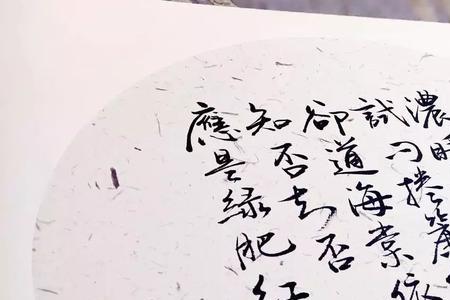 濃睡
試問捲簾
卻道海棠依
知否知否
應是綠肥紅